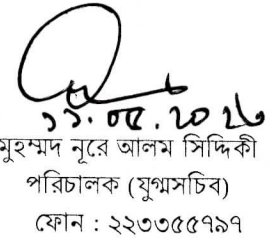 ১১.০৫.২০২৬
মুহম্মদ নূরে আলম সিদ্দিকী
পরিচালক (যুগ্মসচিব)
ফোন : ২২৩৩৫৫৭৯৭